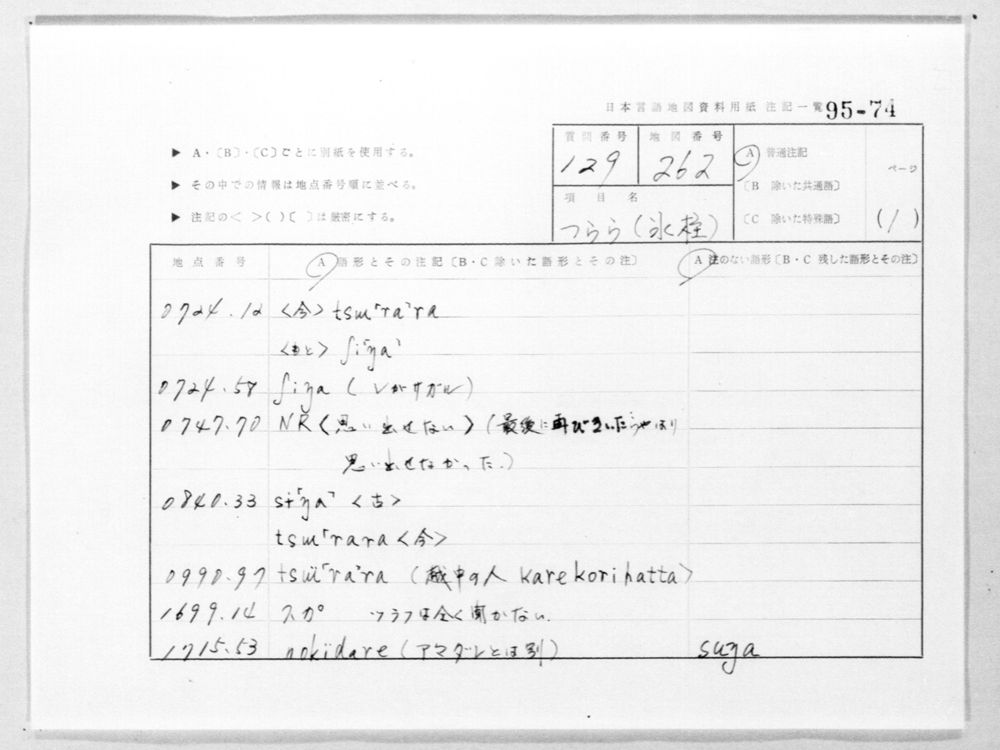 日本言語地図資料用紙 注記一覧 95-74
▶ A・〔B〕・〔C〕ごとに別紙を使用する。
▶ その中での情報は地点番号順に並べる。
▶ 注記の< >( )〔 〕は厳密にする。
質問番号 地図番号
129 262
項目名
つらら(氷柱)
A 普通注記
〔B 除いた共通語〕
〔C 除いた特殊語〕
ページ
(1)
地点番号 A 語形とその注記〔B・C 除いた語形とその注〕 A 注のない語形〔B・C 残した語形とその注〕
0724.12 <今> tsɯ「ra」ra
<もと> ʃi「ŋa」
0724.58 ʃiŋa (シガサガル)
0747.70 NR <思い出せない> (最後に再びきいたがやはり
思い出せなかった.)
0840.33 sï「ŋa」 <古>
tsɯ「rara <今>
0990.97 tsɯ̈「ra」ra (越中の人 karekorihatta)
1699.14 スガ ツララは全く聞かない.
1715.53 nokïdare (アマダレとは別) suŋa